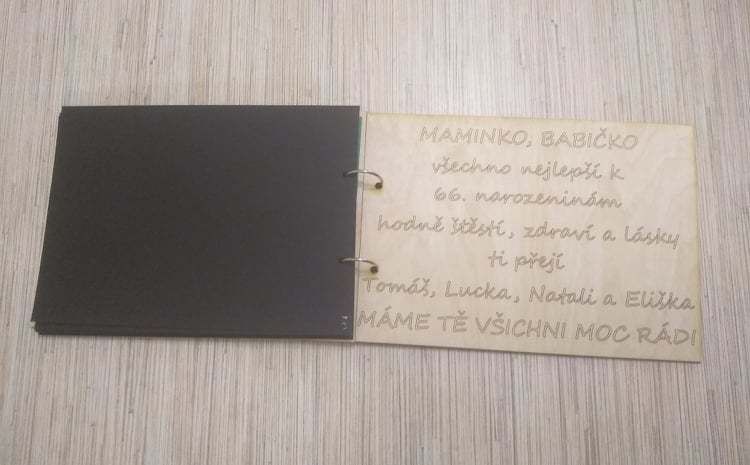 MAMINKO, BABIČKO
všechno nejlepší k
66. narozeninám
hodně štěstí, zdraví a lásky
ti přejí
Tomáš, Lucka, Natali a Eliška
MÁME TĚ VŠICHNI MOC RÁDI